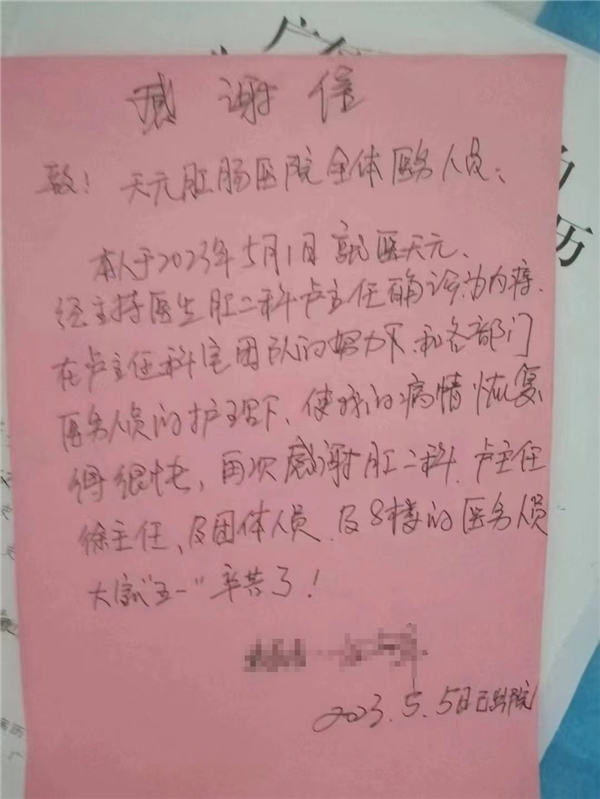 感谢信
致！天元肛肠医院全体医务人员：
本人于2023年5月1日就医天元、
经主持医生肛二科卢主任确诊为内痔.
在卢主任科室团队的努力下.和各部门
医务人员的护理下、使我的病情恢复
得很快，再次感谢肛二科.卢主任
徐主任、及团体人员.及8楼的医务人员
大家"五一"辛苦了！
2023.5.5日已出院
历